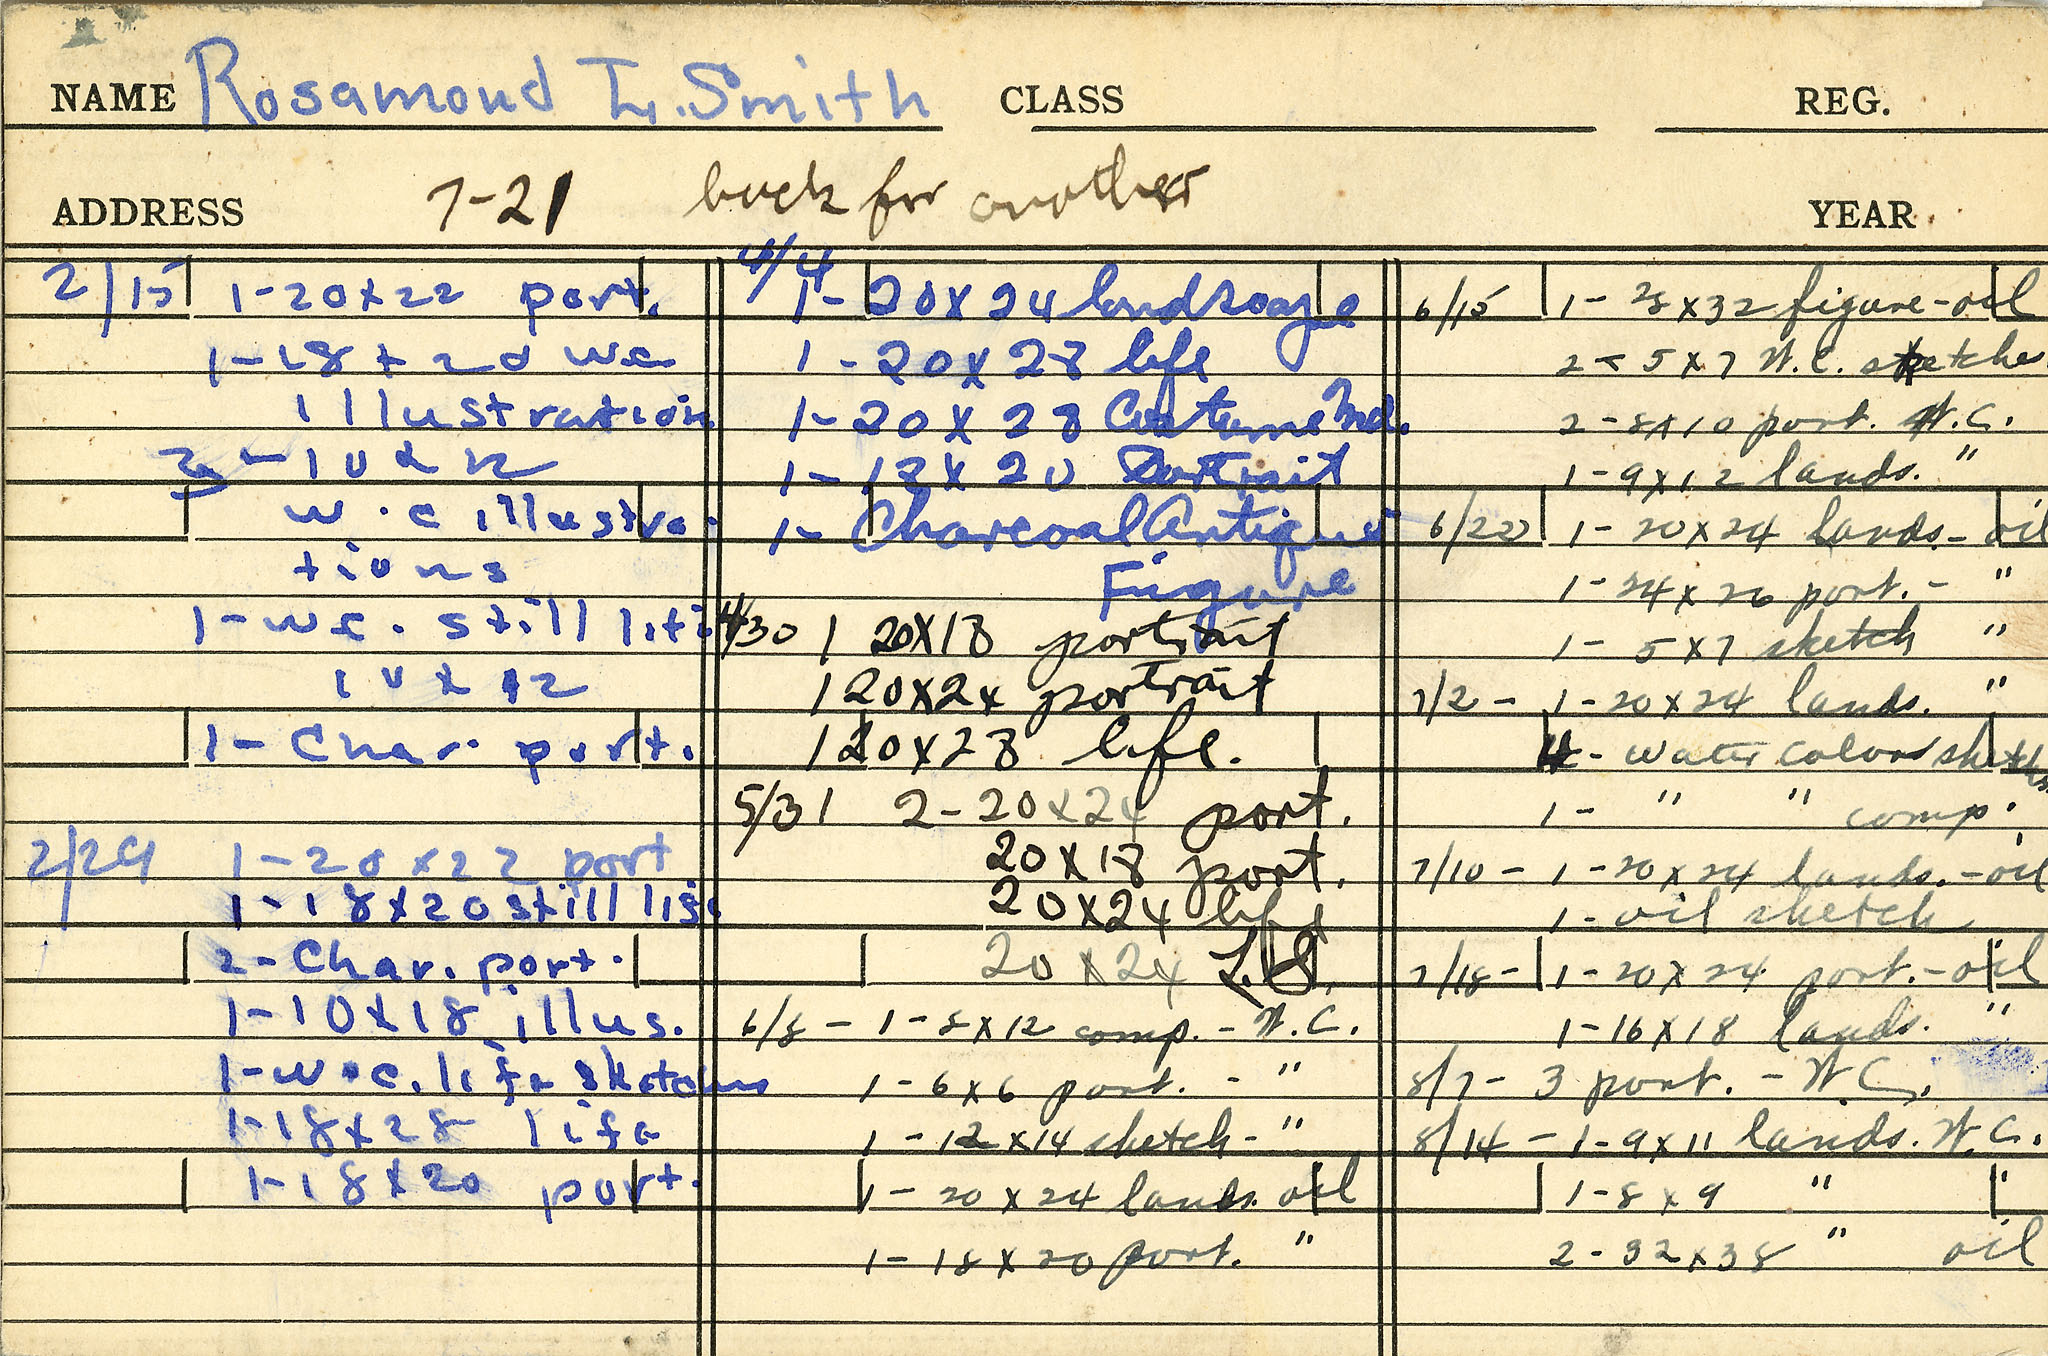 NAME Rosamond L. Smith CLASS REG.
ADDRESS 7-21 back for another YEAR
2/15 1-20x22 port.
1-18x20 wc
illustration
2-10x12
w.c illustra-
tions
1-wc. still life
10x12
1-Char. port.
2/29 1-20x22 port
1-18x20 still life
2-Char. port.
1-10x18 illus.
1-w.c. life sketches
1-18x28 life
1-18x20 port.
4/4
1-20x24 landscape
1-20x28 life
1-20x28 Costume Md.
1-18x20 Portrait
1-Charcoal Antique
Figure
4/30 1 20x18 portrait
1 20x24 portrait
1 20x28 life.
5/31 2-20x24 port.
20x18 port.
20x24 life
20x24
6/8 - 1-8x12 comp. - W.C.
1-6x6 port. - "
1-12x14 sketch - "
1-20x24 lands. oil
1-18x20 port. "
6/15 1-28x32 figure-oil
2-5x7 W.C. sketches
2-8x10 port. W.C.
1-9x12 lands. "
6/22 1-20x24 lands.-oil
1-24x26 port.- "
1-5x7 sketch "
7/2 - 1-20x24 lands. "
4-water colors sketches
1- " " comp.
7/10 - 1-20x24 lands.-oil
1-oil sketch
7/18 - 1-20x24 port.-oil
1-16x18 lands. "
8/7 - 3 port. - W.C.
8/14 - 1-9x11 lands. W.C.
1-8x9 " "
2-32x38 " oil